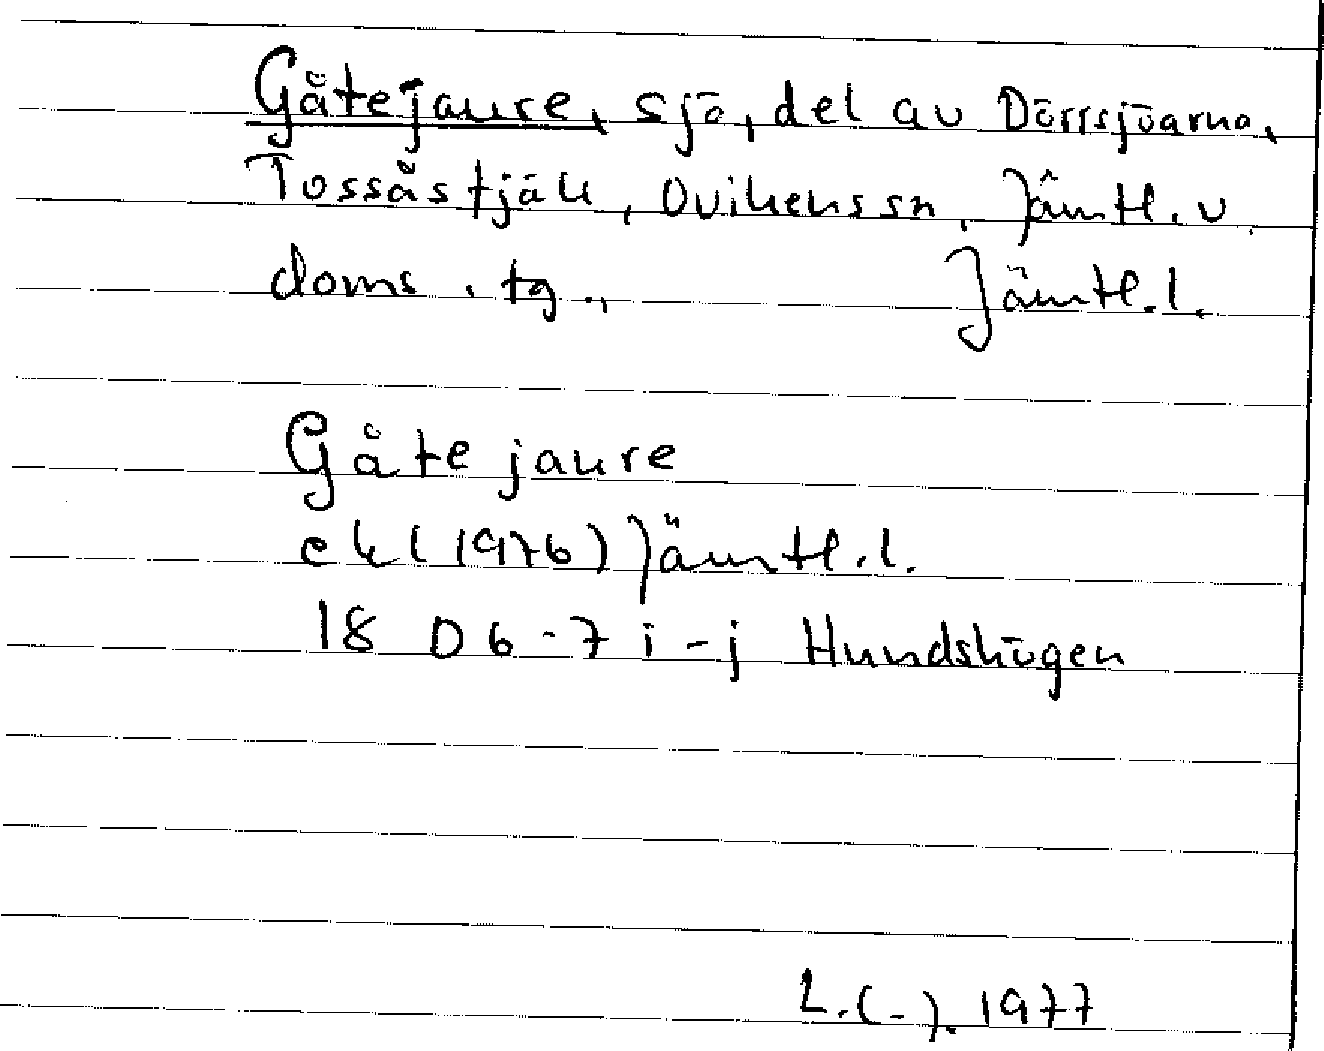 Gåtejaure, sjö, del av Dörrsjöarna,
Tossåstjäll, Ovikens sn, Jämtl. v.
doms. tg., Jämtl. l.
Gåtejaure
ek (1976) Jämtl. l.
18 D 6-7 i-j Hundshögen
L.(-). 1977